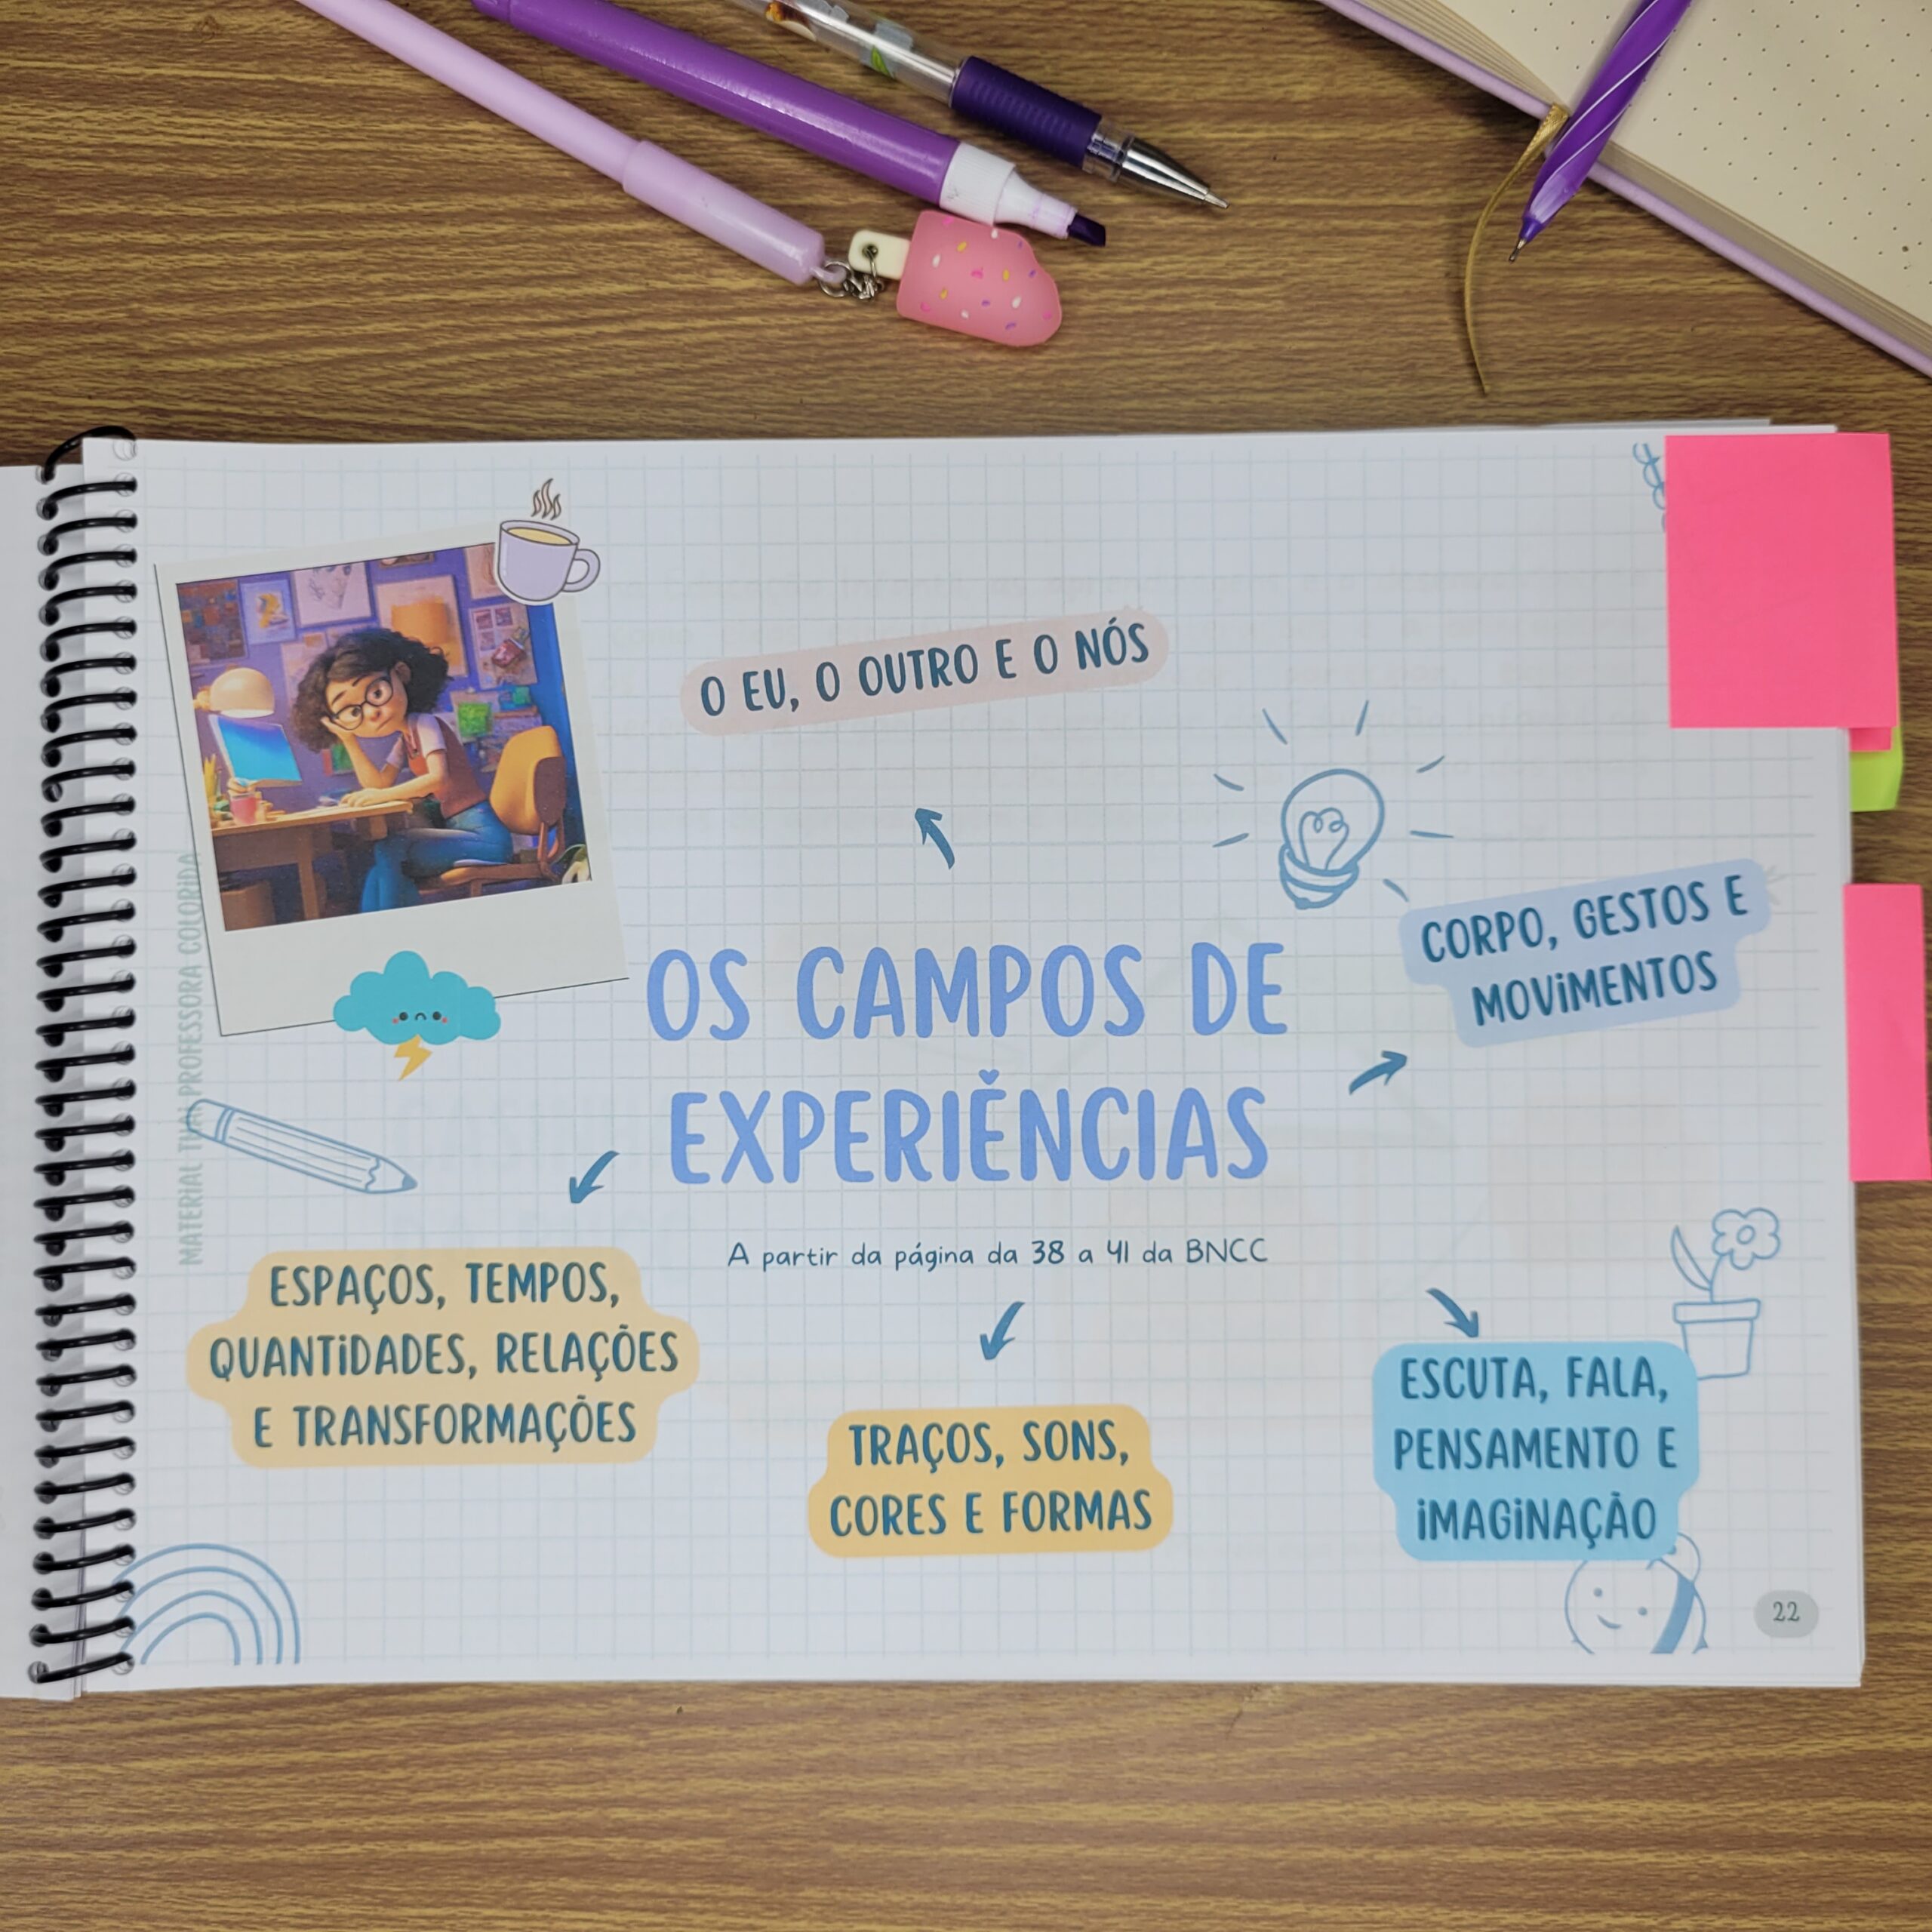 O EU, O OUTRO E O NÓS
CORPO, GESTOS E
MOVIMENTOS
OS CAMPOS DE
EXPERIÊNCIAS
A partir da página da 38 a 41 da BNCC
ESPAÇOS, TEMPOS,
QUANTIDADES, RELAÇÕES
E TRANSFORMAÇÕES
TRAÇOS, SONS,
CORES E FORMAS
ESCUTA, FALA,
PENSAMENTO E
IMAGINAÇÃO
MATERIAL THAI PROFESSORA COLORIDA
22